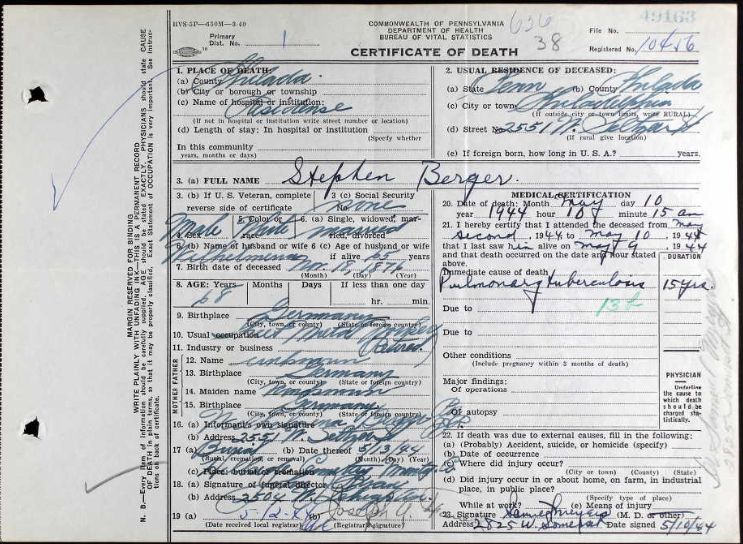 HVS-5P-650M-3-40
COMMONWEALTH OF PENNSYLVANIA
DEPARTMENT OF HEALTH
BUREAU OF VITAL STATISTICS
636
38
File No. 49163
Primary
Dist. No. 1
CERTIFICATE OF DEATH
Registered No. 10456
1. PLACE OF DEATH:
(a) County Philada.
(b) City or borough or township
(c) Name of hospital or institution: Residense
(If not in hospital or institution write street number or location)
(d) Length of stay: In hospital or institution
(Specify whether
In this community
years, months or days)
2. USUAL RESIDENCE OF DECEASED:
(a) State Penn (b) County Philada
(c) City or town Philadelphia
(If outside city or town limits, write RURAL)
(d) Street No. 2551 W. Seltzer St
(If rural give location)
(e) If foreign born, how long in U. S. A.? years.
3. (a) FULL NAME Stephen Berger.
3. (b) If U. S. Veteran, complete
reverse side of certificate
3 (c) Social Security
No. none
4. Sex Male
5. Color or
race White
6. (a) Single, widowed, married, divorced married
6. (b) Name of husband or wife Wilhelmina
6 (c) Age of husband or wife
if alive 65 years
7. Birth date of deceased Nov 18, 187
(Month) (Day) (Year)
8. AGE: Years 68 Months Days If less than one day
hr. min.
9. Birthplace Germany
(City, town, or county) (State or foreign country)
10. Usual occupation
11. Industry or business (Retired)
MOTHER FATHER
12. Name unknown
13. Birthplace Germany
(City, town, or county) (State or foreign country)
14. Maiden name unknown
15. Birthplace Germany
(City, town, or county) (State or foreign country)
16. (a) Informant's own signature
(b) Address 2551 W. Seltzer St
17. (a) Burial (b) Date thereof 5/13/44
(Burial, cremation, or removal) (Month) (Day) (Year)
(c) Place: burial or cremation
18. (a) Signature of funeral director
(b) Address 2504 W. Lehigh Ave
19 (a) 5-12-44 (b) Joseph
(Date received local registrar) (Registrar's signature)
MEDICAL CERTIFICATION
20. Date of death: Month May day 10
year 1944 hour 10 minute 15 am
21. I hereby certify that I attended the deceased from May
second, 1944 to May 10, 1944
that I last saw him alive on May 9 1944
and that death occurred on the date and hour stated
above.
DURATION
Immediate cause of death
Pulmonary tuberculosis 15 yrs.
Due to 13b
Due to
Other conditions
(Include pregnancy within 3 months of death)
Major findings:
Of operations
Of autopsy
PHYSICIAN
Underline
the cause to
which death
should be
charged statistically.
22. If death was due to external causes, fill in the following:
(a) Probably) Accident, suicide, or homicide (specify)
(b) Date of occurrence
(c) Where did injury occur?
(City or town) (County) (State)
(d) Did injury occur in or about home, on farm, in industrial
place, in public place?
(Specify type of place)
While at work? (e) Means of injury
23. Signature Samuel Meyers (M. D. or other)
Address 2825 W. Somerset Date signed 5/10/44
WRITE PLAINLY WITH UNFADING INK—THIS IS A PERMANENT RECORD
MARGIN RESERVED FOR BINDING
N. B.—Every item of information should be carefully supplied. AGE should be stated EXACTLY. PHYSICIANS should state CAUSE
OF DEATH in plain terms, so that it may be properly classified. Exact Statement of OCCUPATION is very important. See instructions on back of certificate.